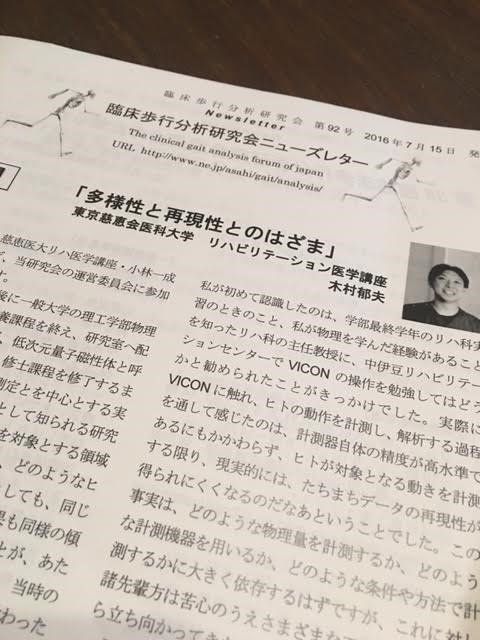 臨床歩行分析研究会 第92号 2016年7月15日 発
Newsletter
臨床歩行分析研究会ニューズレター
The clinical gait analysis forum of japan
URL http://www.ne.jp/asahi/gait/analysis/
「多様性と再現性とのはざま」
東京慈恵会医科大学 リハビリテーション医学講座
木村郁夫
慈恵医大リハ医学講座・小林一成
ど、当研究会の運営委員会に参加
す。
後に一般大学の理工学部物理
養課程を終え、研究室へ配
、低次元量子磁性体と呼
修士課程を修了するま
測定とを中心とする実
として知られる研究
を対象とする領域
、どのようなヒ
しても、同じ
果も同様の傾
とが、あた
、当時の
わった
私が初めて認識したのは、学部最終学年のリハ科実
習のときのこと、私が物理を学んだ経験があること
を知ったリハ科の主任教授に、中伊豆リハビリテー
ションセンターで VICON の操作を勉強してはどう
かと勧められたことがきっかけでした。実際に
VICON に触れ、ヒトの動作を計測し、解析する過程
を通して感じたのは、計測器自体の精度が高水準で
あるにもかかわらず、ヒトが対象となる動きを計測
する限り、現実的には、たちまちデータの再現性が
得られにくくなるのだなあということでした。この
事実は、どのような物理量を計測するか、どのよう
な計測機器を用いるか、どのような条件や方法で計
測するかに大きく依存するはずですが、これに対し
諸先輩方は苦心のうえさまざまな
ら立ち向かってき